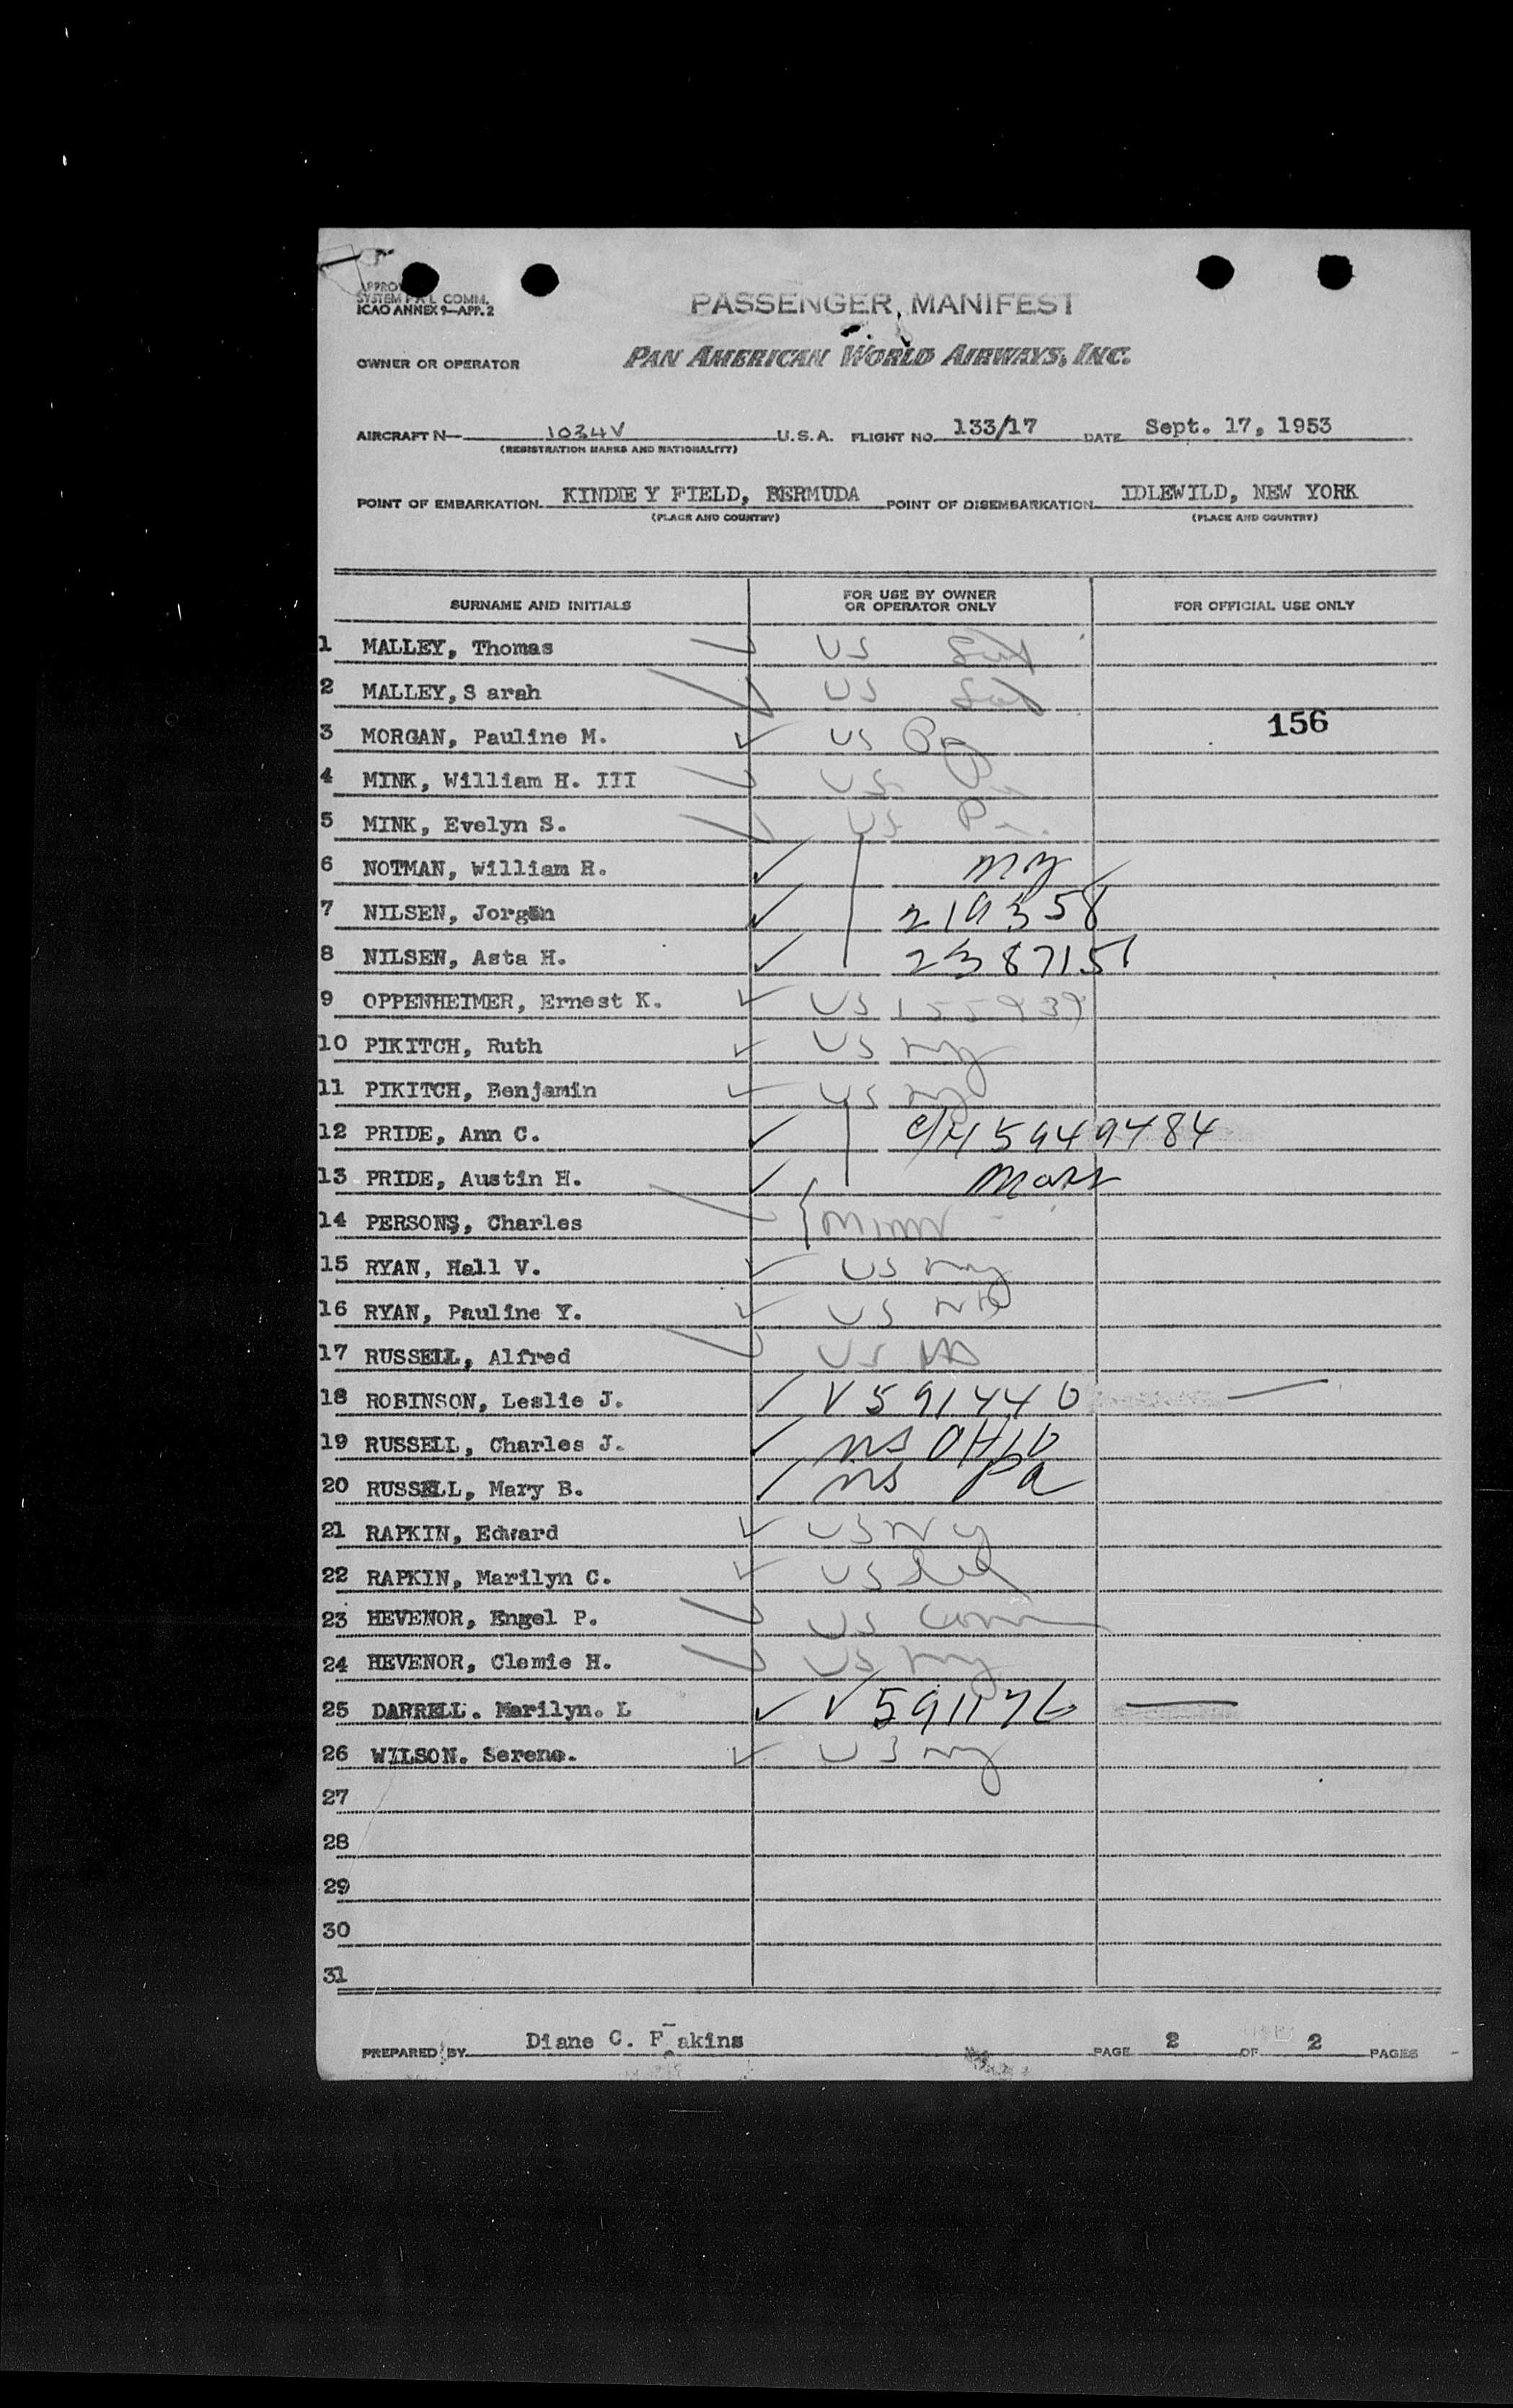 APPRO
SYSTEM P A L COMM.
ICAO ANNEX 9—APP. 2
PASSENGER MANIFEST
OWNER OR OPERATOR PAN AMERICAN WORLD AIRWAYS, INC.
AIRCRAFT N— 1034V U.S.A. FLIGHT NO. 133/17 DATE Sept. 17, 1953
(REGISTRATION MARKS AND NATIONALITY)
POINT OF EMBARKATION KINDLE Y FIELD, BERMUDA POINT OF DISEMBARKATION IDLEWILD, NEW YORK
(PLACE AND COUNTRY) (PLACE AND COUNTRY)
SURNAME AND INITIALS FOR USE BY OWNER OR OPERATOR ONLY FOR OFFICIAL USE ONLY
1 MALLEY, Thomas US
2 MALLEY, S arah US
156
3 MORGAN, Pauline M. US
4 MINK, William H. III US
5 MINK, Evelyn S. US Pa.
6 NOTMAN, William R. NY
7 NILSEN, Jorgen 219358
8 NILSEN, Asta H. 238715
9 OPPENHEIMER, Ernest K. US 155939
10 PIKITCH, Ruth US NY
11 PIKITCH, Benjamin US NY
12 PRIDE, Ann C. 5949484
13 PRIDE, Austin H. Mass
14 PERSONS, Charles Minn
15 RYAN, Hall V. US NY
16 RYAN, Pauline Y. US
17 RUSSELL, Alfred US
18 ROBINSON, Leslie J. V591440
19 RUSSELL, Charles J. US OHIO
20 RUSSELL, Mary B. US Pa
21 RAPKIN, Edward US NY
22 RAPKIN, Marilyn C. US
23 HEVENOR, Engel P. US Conn
24 HEVENOR, Clemie H. US NY
25 DARRELL. Marilyn. L V591176
26 WILSON. Serene. US NY
27
28
29
30
31
PREPARED BY Diane C. F akins PAGE 2 OF 2 PAGES